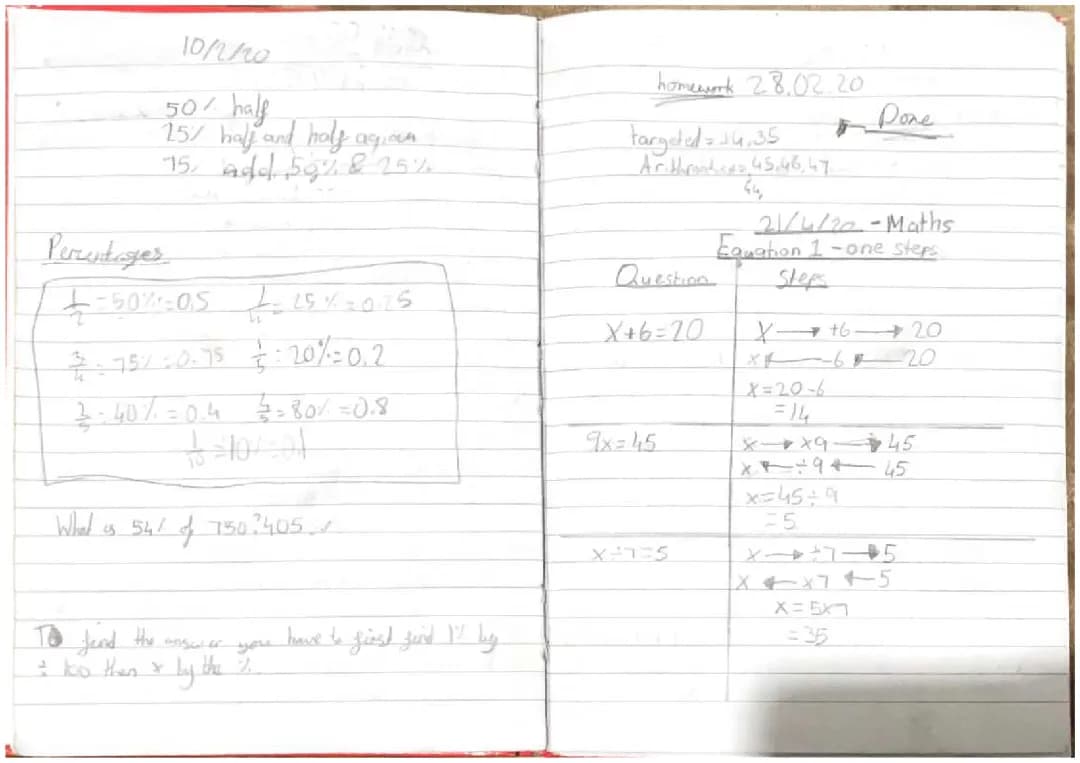 10/2/20
50% half
25% half and half again
75% add 50% & 25%
Percentages
1/2 = 50% = 0.5 1/4 = 25% = 0.25
3/4 = 75% = 0.75 1/5 = 20% = 0.2
2/5 = 40% = 0.4 4/5 = 80% = 0.8
1/10 = 10% = 0.1
What is 54% of 750? 405
To find the answer you have to first find 1% by
÷ 100 then × by the %
homework 28.02.20
Done
targeted = 14,35
45,46,47
21/4/20 - Maths
Equation 1 - one steps
Question Steps
x+6=20 x → +6 → 20
x ← -6 ← 20
x=20-6
=14
9x=45 x → x9 → 45
x ← ÷9 ← 45
x=45÷9
=5
x÷7=5 x → ÷7 → 5
x ← x7 ← 5
x=5x7
=35